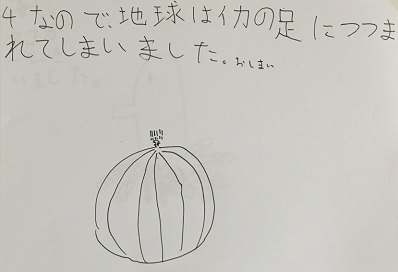 4 なので、地球はイカの足につつま
れてしまいました。おしまい